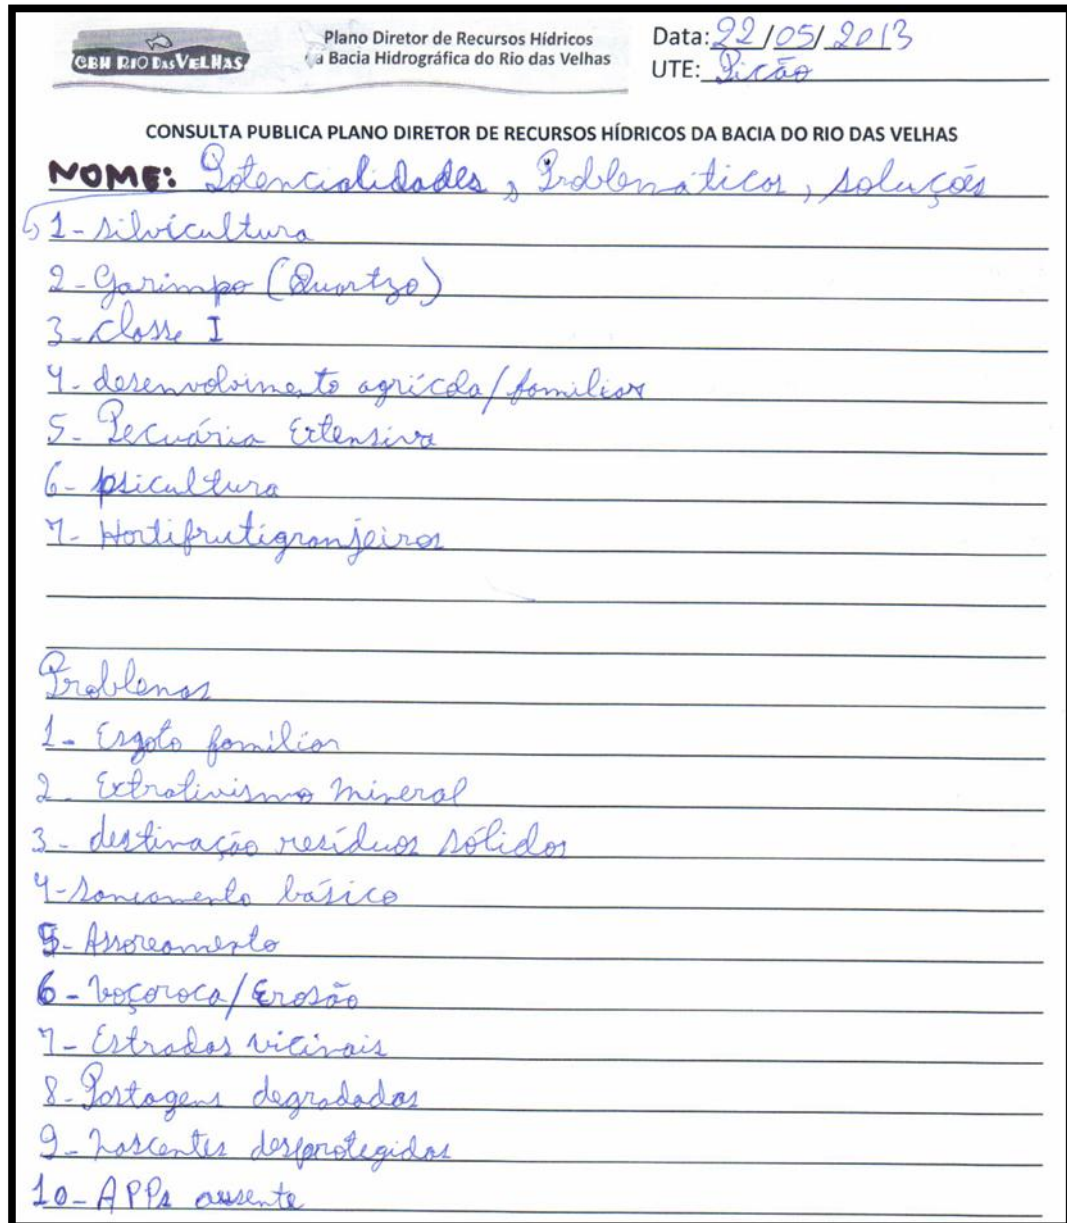 CBH RIO DAS VELHAS
Plano Diretor de Recursos Hídricos
a Bacia Hidrográfica do Rio das Velhas
Data: 22/05/2013
UTE: Picão
CONSULTA PUBLICA PLANO DIRETOR DE RECURSOS HÍDRICOS DA BACIA DO RIO DAS VELHAS
NOME: Potencialidades, Problemáticas, soluções
1- silvicultura
2- Garimpo (Quartzo)
3- classe I
4- desenvolvimento agrícola/familiar
5- Pecuária Extensiva
6- psicultura
7- Hortifrutigranjeiros
Problemas
1- Esgoto familiar
2- Extrativismo mineral
3- destinação resíduos sólidos
4- saneamento básico
5- Assoreamento
6- voçoroca/Erosão
7- Estradas vicinais
8- Pastagens degradadas
9- nascentes desprotegidas
10- APPs ausente